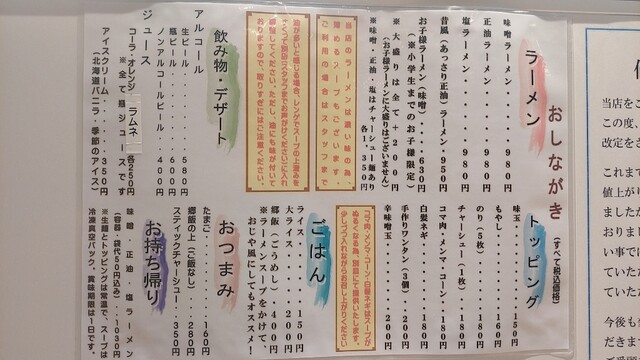 おしながき
(すべて税込価格)
ラーメン
味噌ラーメン・・・・980円
正油ラーメン・・・・980円
塩ラーメン・・・・・980円
昔風(あっさり正油)ラーメン・950円
お子様ラーメン(味噌)・・・630円
(※小学生までのお子様限定)
※大盛りは全て+200円
(お子様ラーメンに大盛りはございません)
※味噌・正油・塩はチャーシュー麺あり
各1,350円
当店のラーメンは濃い味の為、
薄めるスープもございます。
ご利用の場合はスタッフまで
油が多いと感じる場合、レンゲでスープの上澄みを
すくって別容器(スタッフまでお声がけください)に入れ
調整してください。ただし、油にも味が付いて
おりますので、取りすぎにはご注意ください。
飲み物・デザート
アルコール
生ビール・・・・580円
瓶ビール・・・・600円
ノンアルコールビール・・400円
ジュース
コーラ・オレンジ ラムネ 各250円
※全て瓶ジュースです
アイスクリーム・・・・350円
(北海道バニラ・季節のアイス)
トッピング
味玉・・・・・・・150円
もやし・・・・・・160円
のり(5枚)・・・・180円
チャーシュー(1枚)・180円
コマ肉・メンマ・コーン・180円
白髪ネギ・・・・・180円
手作りワンタン(3個)・200円
辛味噌玉・・・・・200円
コマ肉・メンマ・コーン・白髪ネギはスープが
ぬるくなる為、別皿にて提供いたします。
少しづつ入れながらお召し上がりください。
ごはん
ライス・・・・150円
大ライス・・・200円
郷飯(ごうめし)・400円
※ラーメンスープをかけて、
おじや風にしてもオススメ!
おつまみ
たまご・・・・・・160円
郷飯の上(ご飯なし)280円
スティックチャーシュー・350円
お持ち帰り
味噌・正油・塩ラーメン
(容器・袋代50円込み)・・1030円
※生麺・トッピングは常温で、スープは
冷凍真空パック。賞味期限は1日です。
当店をご
この度、
改定をさ
これまで
値上がり
ましたが
おりまし
い事では
ていただ
ていただ
今後も
だきま